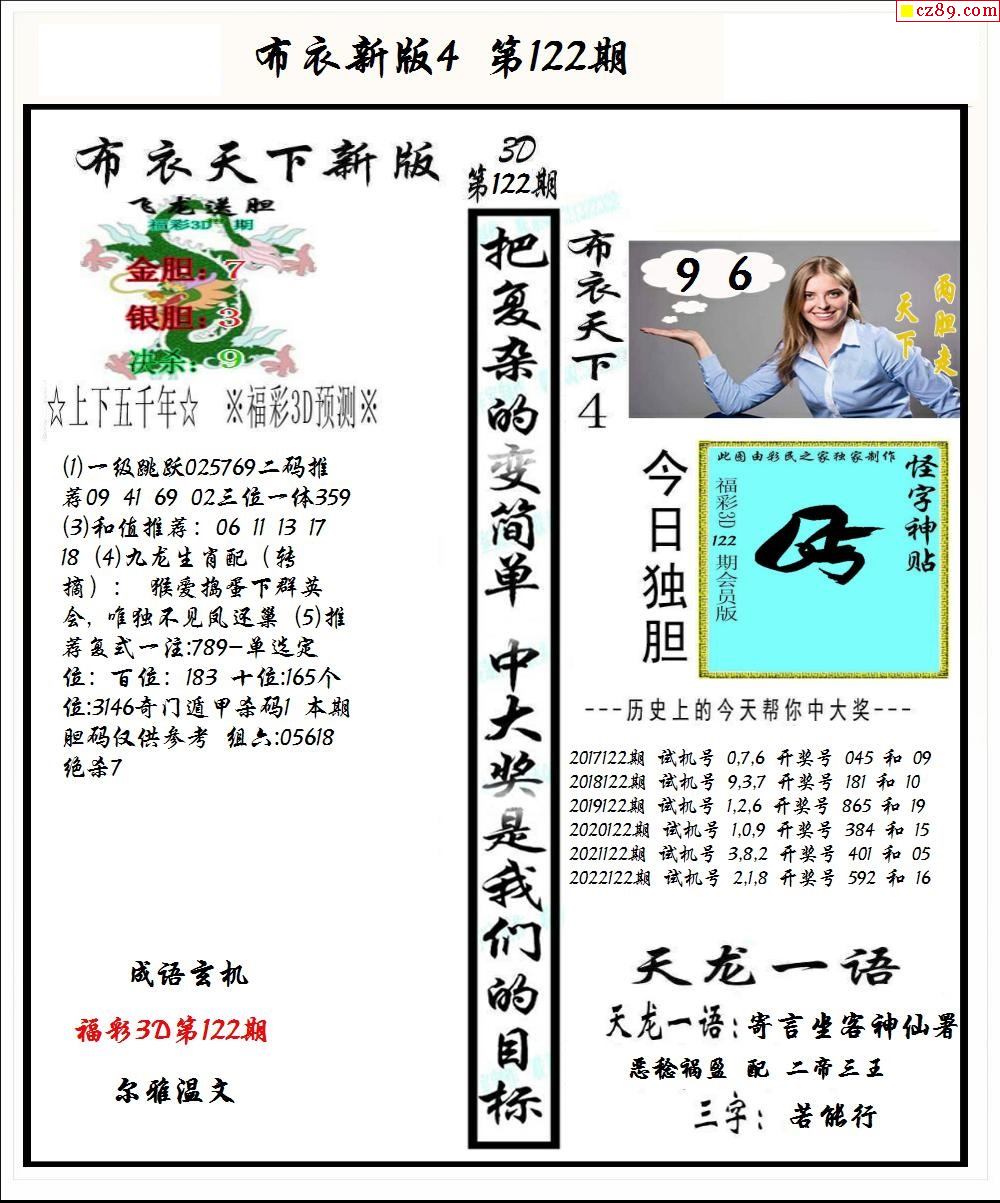 cz89.com
布衣新版4 第122期
布衣天下新版
飞龙送胆
福彩3D 期
金胆：7
银胆：3
决杀：9
☆上下五千年☆ ※福彩3D预测※
(1)一级跳跃025769二码推
荐09 41 69 02三位一体359
(3)和值推荐：06 11 13 17
18 (4)九龙生肖配（转
摘）： 猴爱捣蛋下群英
会，唯独不见凤还巢 (5)推
荐复式一注:789-单选定
位：百位：183 十位:165个
位:3146奇门遁甲杀码1 本期
胆码仅供参考 组六:05618
绝杀7
成语玄机
福彩3D第122期
尔雅温文
3D
第122期
把复杂的变简单 中大奖是我们的目标
布衣天下4
9 6
两胆走
天下
今日独胆
此图由彩民之家独家制作
怪字神贴
福彩3D 122 期会员版
---历史上的今天帮你中大奖---
2017122期 试机号 0,7,6 开奖号 045 和 09
2018122期 试机号 9,3,7 开奖号 181 和 10
2019122期 试机号 1,2,6 开奖号 865 和 19
2020122期 试机号 1,0,9 开奖号 384 和 15
2021122期 试机号 3,8,2 开奖号 401 和 05
2022122期 试机号 2,1,8 开奖号 592 和 16
天龙一语
天龙一语：寄言坐客神仙署
恶稔祸盈 配 二帝三王
三字： 若能行